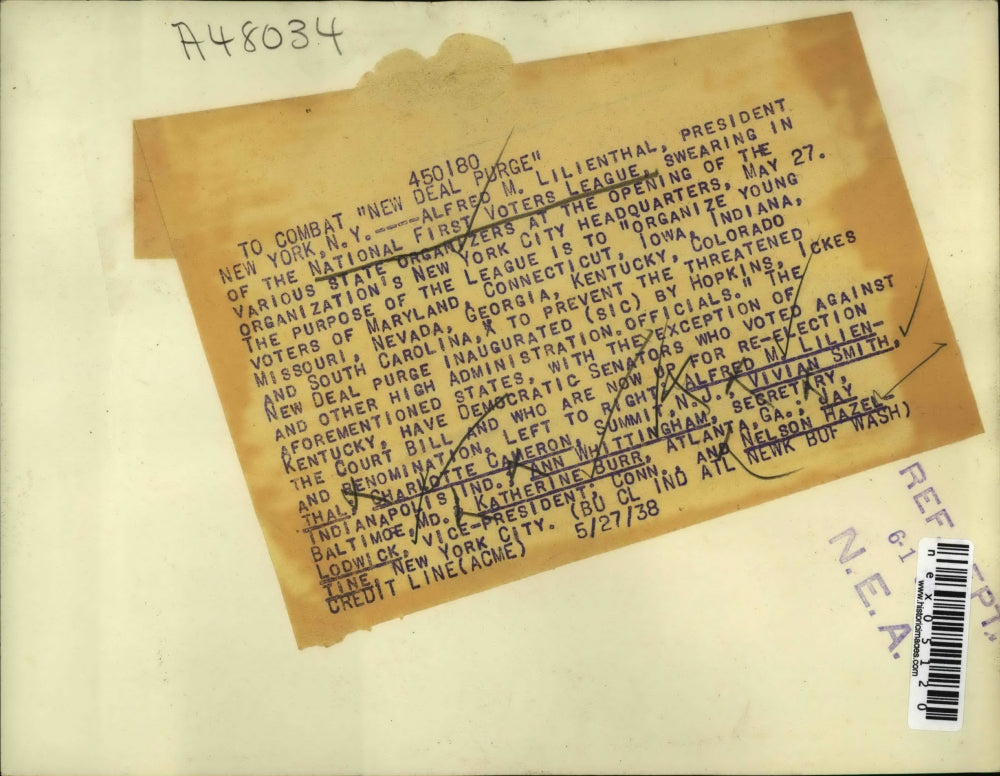 A48034
450180
TO COMBAT "NEW DEAL PURGE"
NEW YORK, N.Y.----ALFRED M. LILIENTHAL, PRESIDENT
OF THE NATIONAL FIRST VOTERS LEAGUE, SWEARING IN
VARIOUS STATE ORGANIZERS AT THE OPENING OF THE
ORGANIZATION'S NEW YORK CITY HEADQUARTERS, MAY 27.
THE PURPOSE OF THE LEAGUE IS TO "ORGANIZE YOUNG
VOTERS OF MARYLAND, CONNECTICUT, IOWA, INDIANA,
MISSOURI, NEVADA, GEORGIA, KENTUCKY, COLORADO
AND SOUTH CAROLINA, TO PREVENT THE THREATENED
NEW DEAL PURGE INAUGURATED (SIC) BY HOPKINS, ICKES
AND OTHER HIGH ADMINISTRATION OFFICIALS." THE
AFOREMENTIONED STATES, WITH THE EXCEPTION OF
KENTUCKY, HAVE DEMOCRATIC SENATORS WHO VOTED AGAINST
THE COURT BILL AND WHO ARE NOW UP FOR RE-ELECTION
AND RENOMINATION. LEFT TO RIGHT, ALFRED M. LILIEN-
THAL, CHARLOTTE CAMERON, SUMMIT, N.J., VIVIAN SMITH,
INDIANAPOLIS, IND., ANN WHITTINGHAM, SECRETARY,
BALTIMOE, MD., KATHERINE BURR, ATLANTA, GA., JAY
LODWICK, VICE-PRESIDENT, CONN., AND NELSON HAZEL-
TINE, NEW YORK CITY. (BU CL IND ATL NEWK BUF WASH)
CREDIT LINE (ACME) 5/27/38
REF
EPT.
6-1
N.E.A.
nex05120
www.historicimages.com